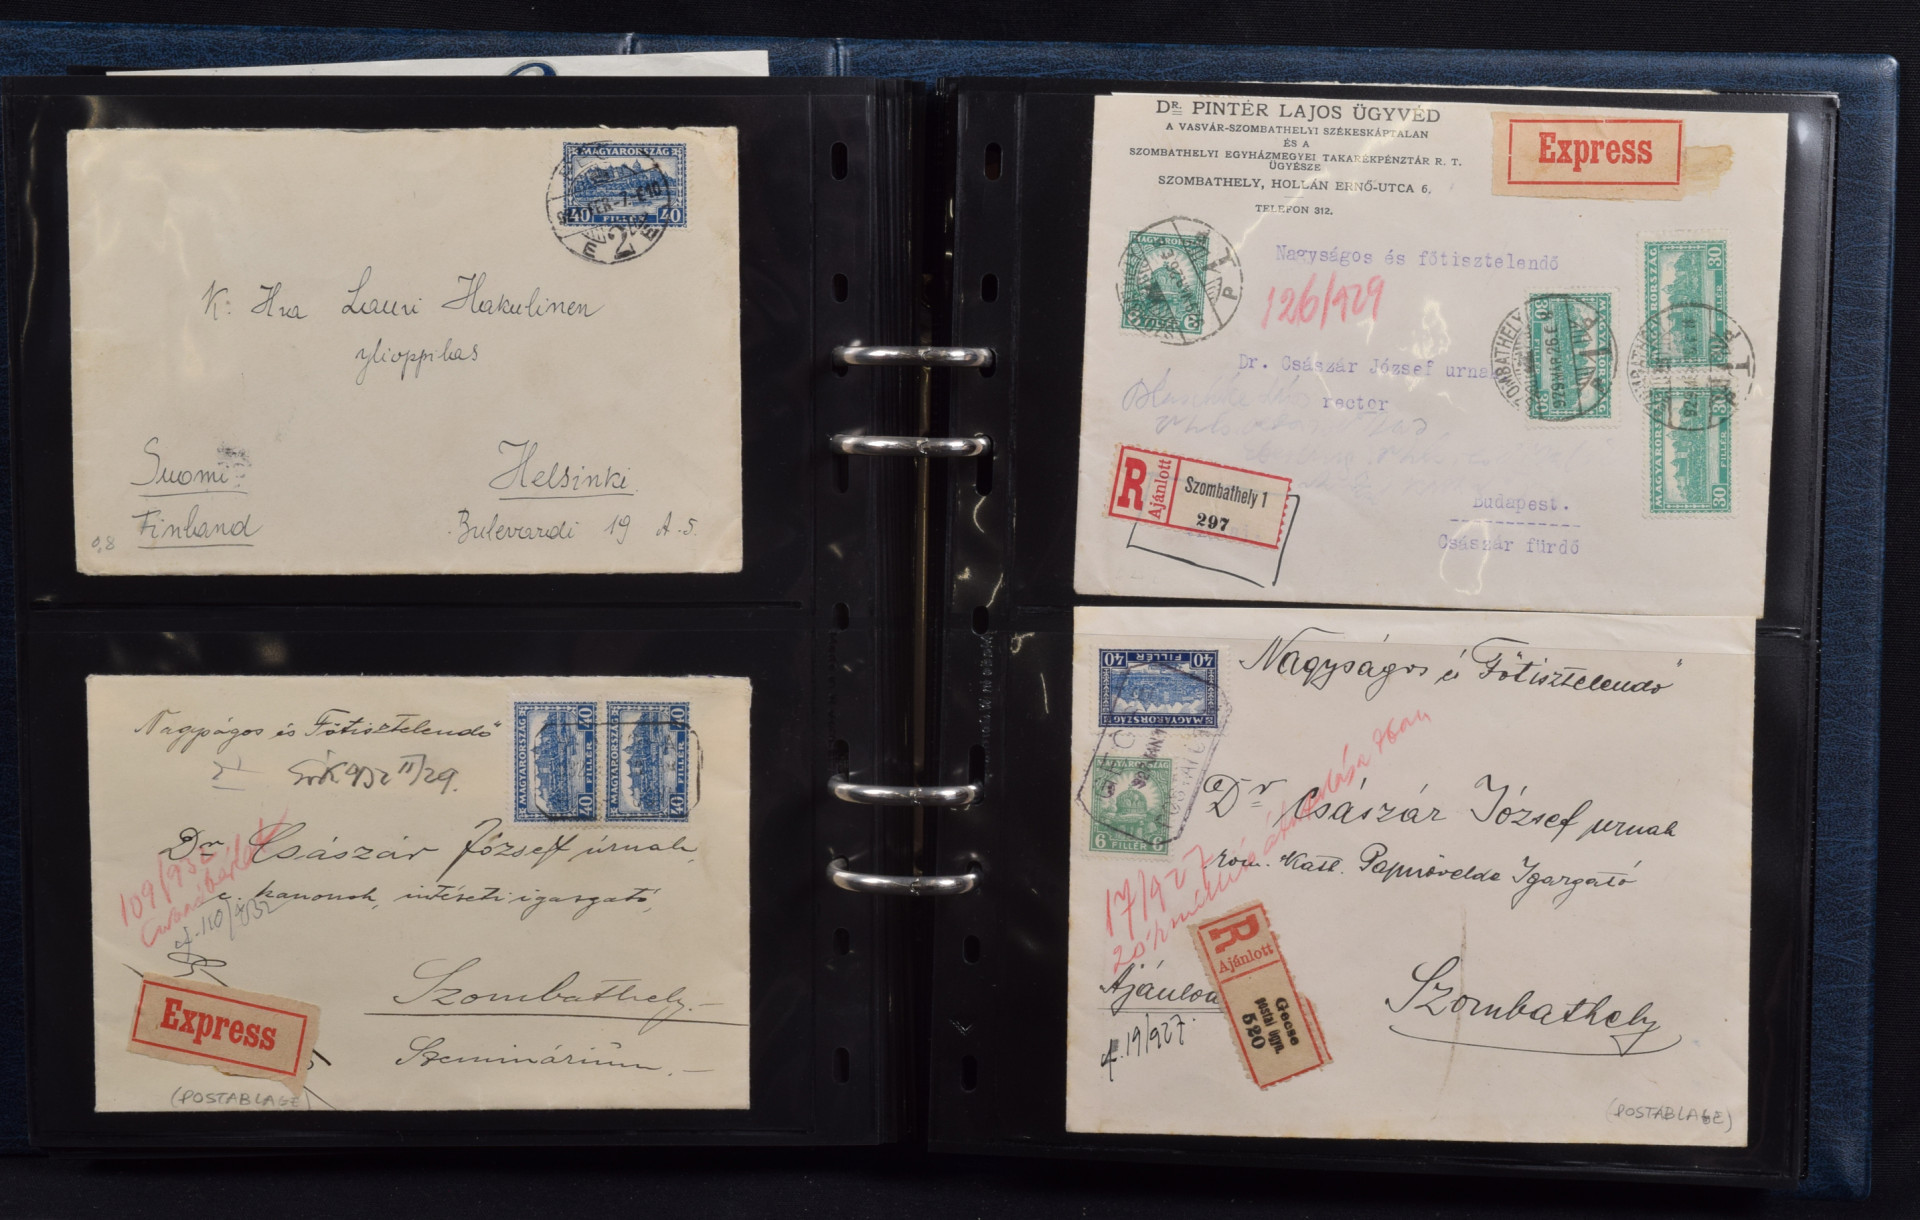 MAGYARORSZÁG
40 FILLÉR 40
K: Hra Lauri Hakulinen
ylioppilas
Suomi
Helsinki
Finland
Bulevardi 19 A.5.
0,8
Nagyságos és Főtisztelendő
MAGYARORSZÁG
40 FILLÉR 40
MAGYARORSZÁG
40 FILLÉR 40
932 II/29.
109/932
Dr Császár József úrnak,
c. kanonok, intézeti igazgató,
110/932
Szombathely.-
Szeminárium.-
Express
(POSTABLAGE)
DR. PINTÉR LAJOS ÜGYVÉD
A VASVÁR-SZOMBATHELYI SZÉKESKÁPTALAN
ÉS A
SZOMBATHELYI EGYHÁZMEGYEI TAKARÉKPÉNZTÁR R. T.
ÜGYÉSZE
SZOMBATHELY, HOLLÁN ERNŐ-UTCA 6.
TELEFON 312.
Express
MAGYARORSZÁG
Nagyságos és főtisztelendő
126/929
MAGYARORSZÁG
30 FILLÉR 30
MAGYARORSZÁG
30 FILLÉR 30
MAGYARORSZÁG
SZOMBATHELY
929 MAR 26
Dr. Császár József urnak
rector
R Ajánlott
Szombathely 1
297
Budapest.
Császár fürdő
40 FILLÉR 40
MAGYARORSZÁG
MAGYARORSZÁG
6 FILLÉR 6
Nagyságos és Főtisztelendő
Dr Császár József urnak
róm. kath. Papnövelde Igazgató
17/927
Ajánlott
R
Ajánlott
Gecse
postai ügyn.
520
19/927.
Szombathely
(POSTABLAGE)